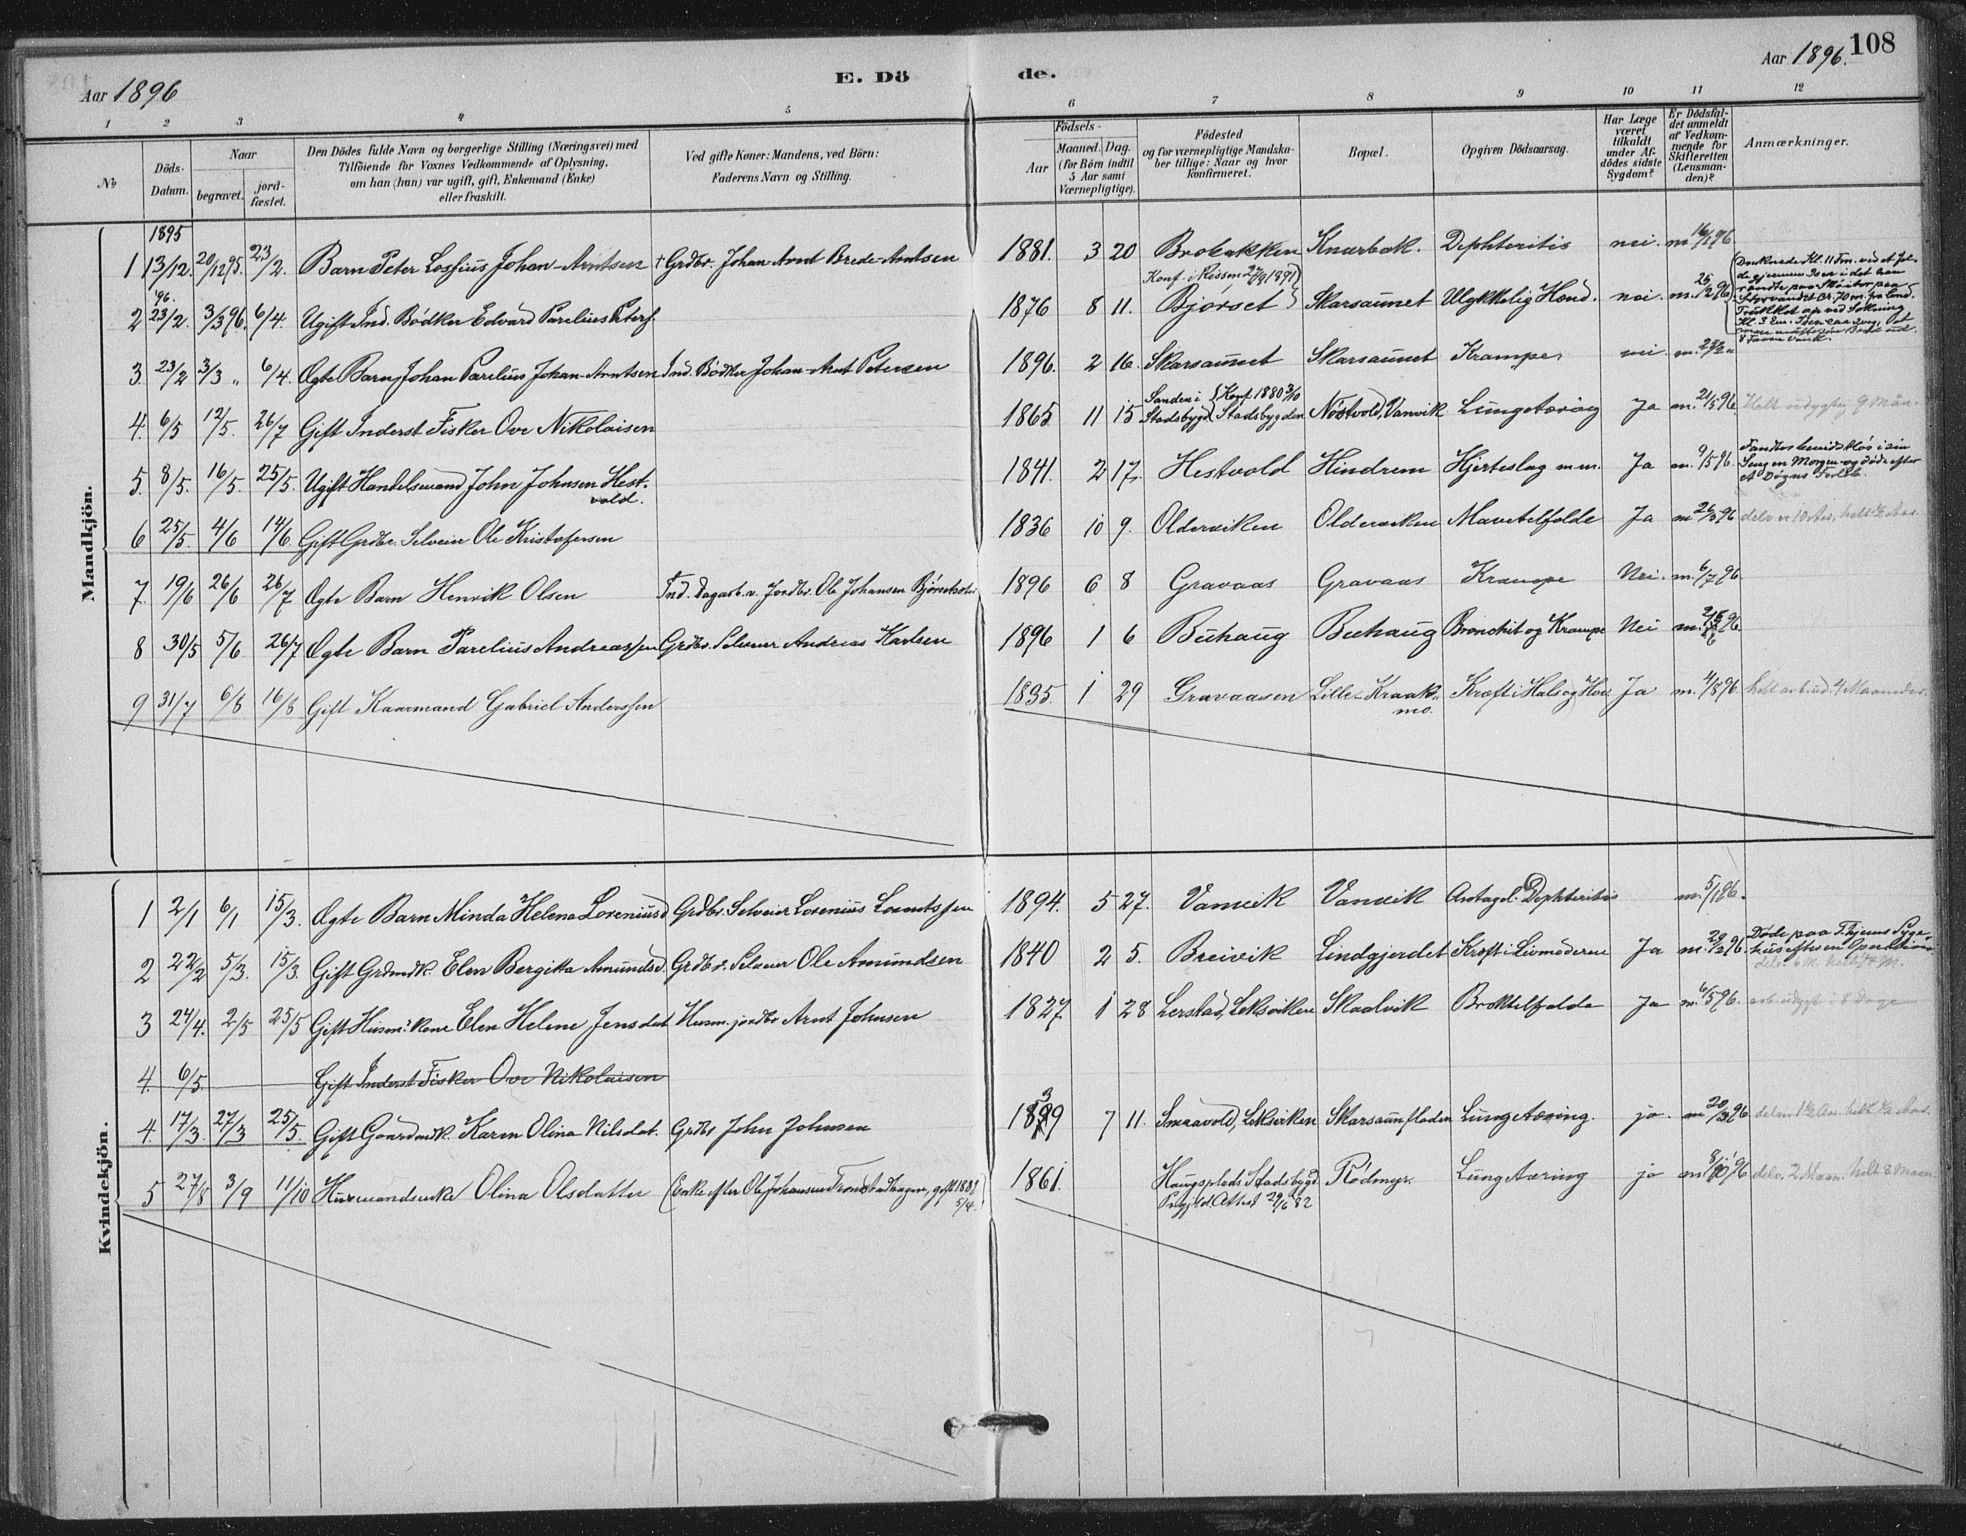 Aar 1896
E. Dö
de.
Aar 1896.
108
1 2 3 4 5 6 7 8 9 10 11 12
No
Döds-Datum.
Naar
begravet.
jord-fæstet.
Den Dödes fulde Navn og borgerlige Stilling (Næringsvei) med
Tilföiende for Voxnes Vedkommende af Oplysning,
om han (hun) var ugift, gift, Enkemand (Enke)
eller fraskilt.
Ved gifte Koner: Mandens, ved Börn:
Faderens Navn og Stilling.
Födsels-
Aar
Maaned. Dag.
(for Börn indtil
5 Aar samt
Værnepligtige).
Födested
og for værnepligtige Mandska-
ber tillige: Naar og hvor
konfirmeret.
Bopæl.
Opgiven Dödsaarsag.
Har Læge
været
tilkaldt
under Af-
dödes sidste
Sygdom?
Er Dödsfal-
det anmeldt
af Vedkom-
mende for
Skifteretten
(Lensman-
den)?
Anmærkninger.
Mandkjön.
1895
1 13/12. 20/12 95. 23/2. Barn Peter Losfius Johan-Arntsen + Grdbr. Johan Arnt Brede-Arntsen 1881. 3 20 Brobakken Knarbak. Dephteritis nei. m. 16/1 96
Konf. i Rissen 27/9 1891
'96.
2 23/2. 3/3 96. 6/4. Ugift Ind. Bødker Edvard Parelius Peters. 1876 8 11. Bjørset Skarsaunet Ulykkelig Hænd. nei. m. 25/2 96
3. 23/2 3/3 " 6/4. Ægte Barn Johan Parelius Johan-Arntsen Ind. Bødker Johan-Arnt Petersen 1896. 2 16. Skarsaunet Skarsaunet Krampe nei. m. 25/2 "
4. 6/5 12/5. 26/7 Gift Inderst Fisker Ove Nikolaisen 1865 11 15 Sanden i Stadsbygd (Konf. 1880 3/10 Stadsbygden Nøstvold, Vanvik Lungetæring Ja m. 21/5 96. Helt udygtig 9 Mån.
5. 8/5. 16/5. 25/5. Ugift Handelsmand John Johnsen Hest-
vold. 1841. 2 17. Hestvold Hindrem Hjerteslag m.m. Ja m. 9/5 96. Fandtes bevidstløs i sin
Seng en Morgen og døde efter
et Døgns Forløb.
6 25/5. 4/6 14/6. Gift Grdbr. Selveier Ole Kristofersen 1836 10 9. Olderviken Olderviken Mavetilfælde Ja m 26/5 96
7. 19/6 26/6 26/7 Ægte Barn Henrik Olsen Ind. Dagarb. u. Jordbr. Ole Johansen Bjørset 1896 6 8 Gravaas Gravaas Krampe Nei. m. 6/7 96.
8 30/5 5/6. 26/7 Ægte Barn Parelius Andreassen Grdbr. Selveier Andreas Karlsen 1896 1 6 Buhaug Buhaug Bronchit og Krampe Nei m. 96.
9 31/7 6/8 16/8 Gift Kaarmand Gabriel Anderssen 1835. 1 29 Gravaasen Lille-Kraak-
mo. Kræft i Hals og Ja m. 4/8 96. helt arb.ud. 4 Maaneder.
Kvindekjön.
1 2/1 6/1 15/3. Ægte Barn Minda Helena Loreniusd Grdbr. Selveier Lorenius Lorntssen 1894. 5 27. Vanvik Vanvik Antagel. Dephteritis m. 5/1 96.
2 22/2 5/3. 15/3 Gift Grdmdk. Elen Bergitta Amundsd. Grdbr. Selveier Ole Amundsen 1840 2 5. Breivik Lindgjerdet Kræft i Livmoderen Ja m. 29/2 96. Døde paa Thjems Syge-
hus efter en Operation.
3 24/4. 2/5 25/5 Gift Husm.s kone Elen Helene Jensdat Husm. jordbr. Arnt Johnsen 1827 1 28 Lerstad, Leksviken Skaalvik Brøktilfælde Ja m. 6/5 96. arb. udygt. i 8 Dage
4. 6/5. Gift Inderst Fisker Ove Nikolaisen
4. 17/3. 27/3 25/5. Gift Gaardmdk. Karen Olina Nilsdat. Grdbr John Johnsen 1839 7 11. Smaavold, Leksviken Skarsaunfladen Lungetæring. ja. m 20/3 96
5 27/8 3/9 11/10 Husmandsenke Olina Olsdatter (Enke efter Ole Johansen Tronstadhagen, gift 1881 5/4.) 1861. Haugsplads Stadsbygd
Prgjld. Attest 29/6 82 Rødmyr. Lungetæring ja m. 8/10 96 delv. 2 Maan. helt 8 Maan.